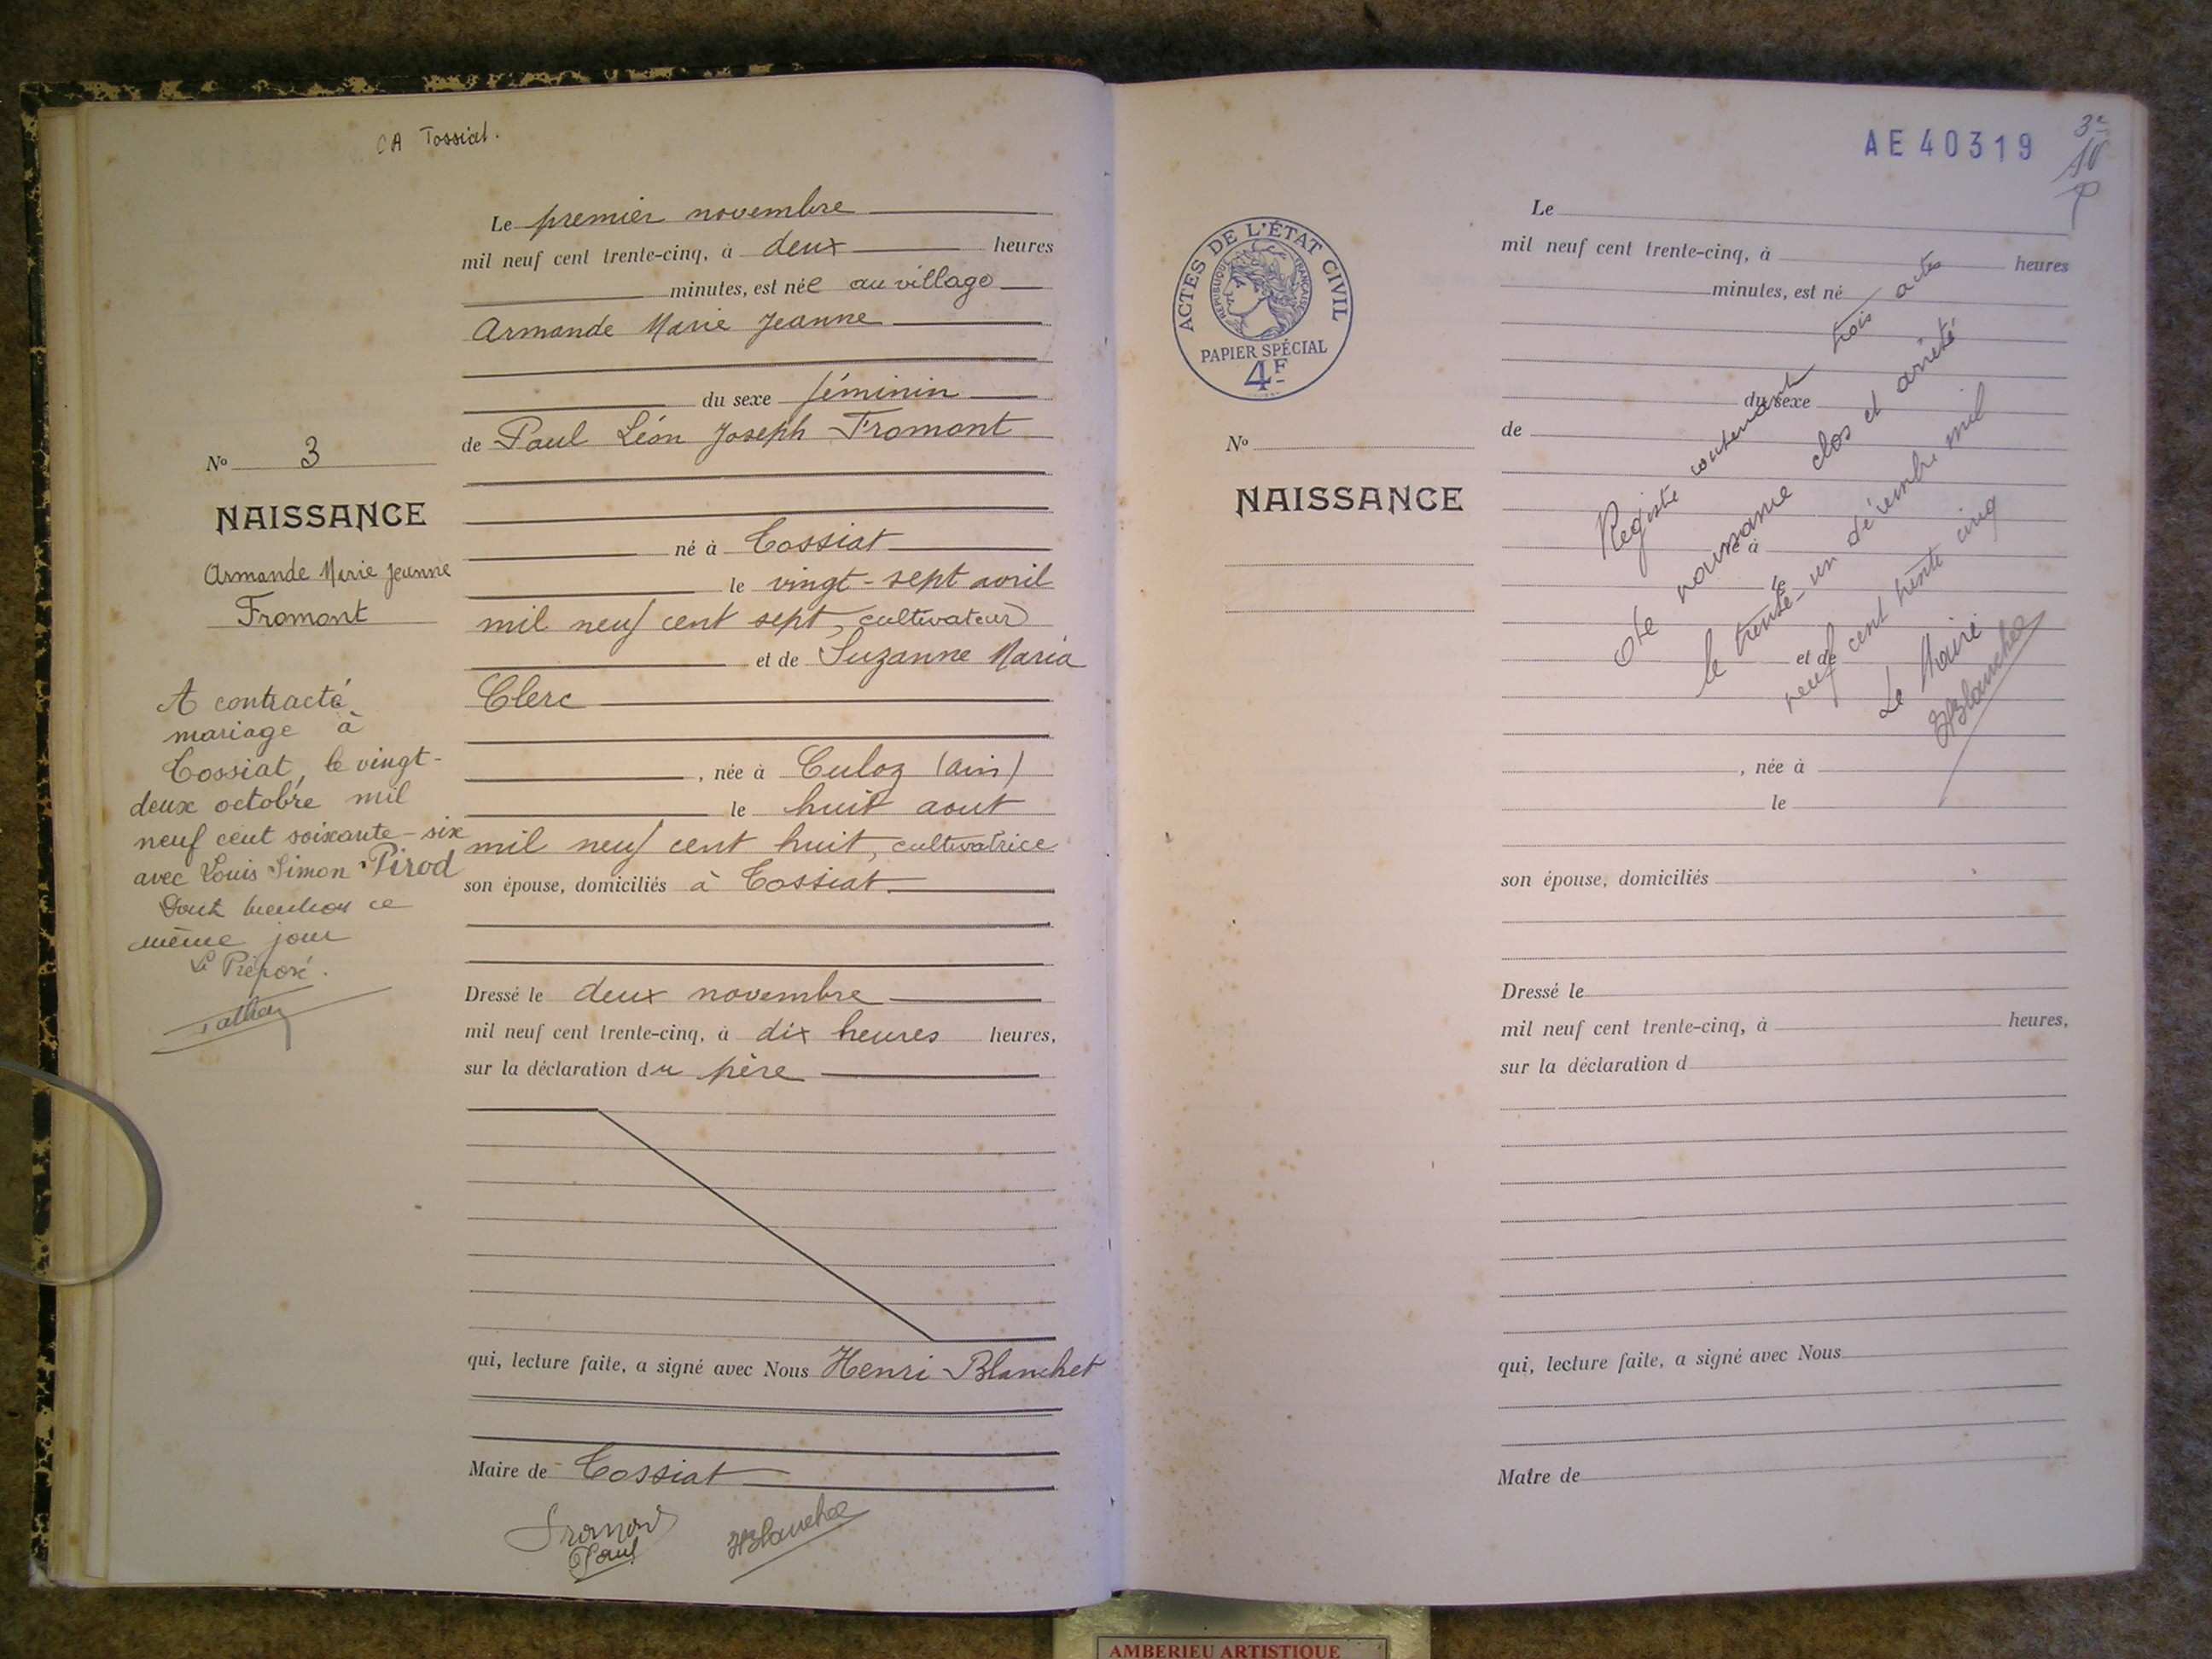 CA Tossiat.
Le premier novembre
mil neuf cent trente-cinq, à deux heures
minutes, est née au village
Armande Marie Jeanne
du sexe féminin
de Paul Léon Joseph Fromont
né à Tossiat
le vingt-sept avril
mil neuf cent sept, cultivateur
et de Suzanne Maria
Clerc
, née à Culoz (Ain)
le huit aout
mil neuf cent huit, cultivatrice
son épouse, domiciliés à Tossiat.
Dressé le deux novembre
mil neuf cent trente-cinq, à dix heures heures,
sur la déclaration du père
qui, lecture faite, a signé avec Nous Henri Blanchet
Maire de Tossiat
Fromont
Paul
HBlanchet
No 3
NAISSANCE
Armande Marie Jeanne
Fromont
A contracté
mariage à
Tossiat, le vingt-
deux octobre mil
neuf cent soixante-six
avec Louis Simon Pirod
Dont mention ce
même jour
Le Préposé.
AE 40319
3e
ACTES DE L'ÉTAT CIVIL
RÉPUBLIQUE FRANÇAISE
PAPIER SPÉCIAL
4F
No
NAISSANCE
Le
mil neuf cent trente-cinq, à heures
minutes, est né
du sexe
de
né à
le
et de
, née à
le
son épouse, domiciliés
Dressé le
mil neuf cent trente-cinq, à heures,
sur la déclaration d
qui, lecture faite, a signé avec Nous
Maire de
Registre contenant trois actes
de naissance clos et arrêté
le trente-un décembre mil
neuf cent trente cinq
Le Maire
HBlanchet
AMBERIEU ARTISTIQUE